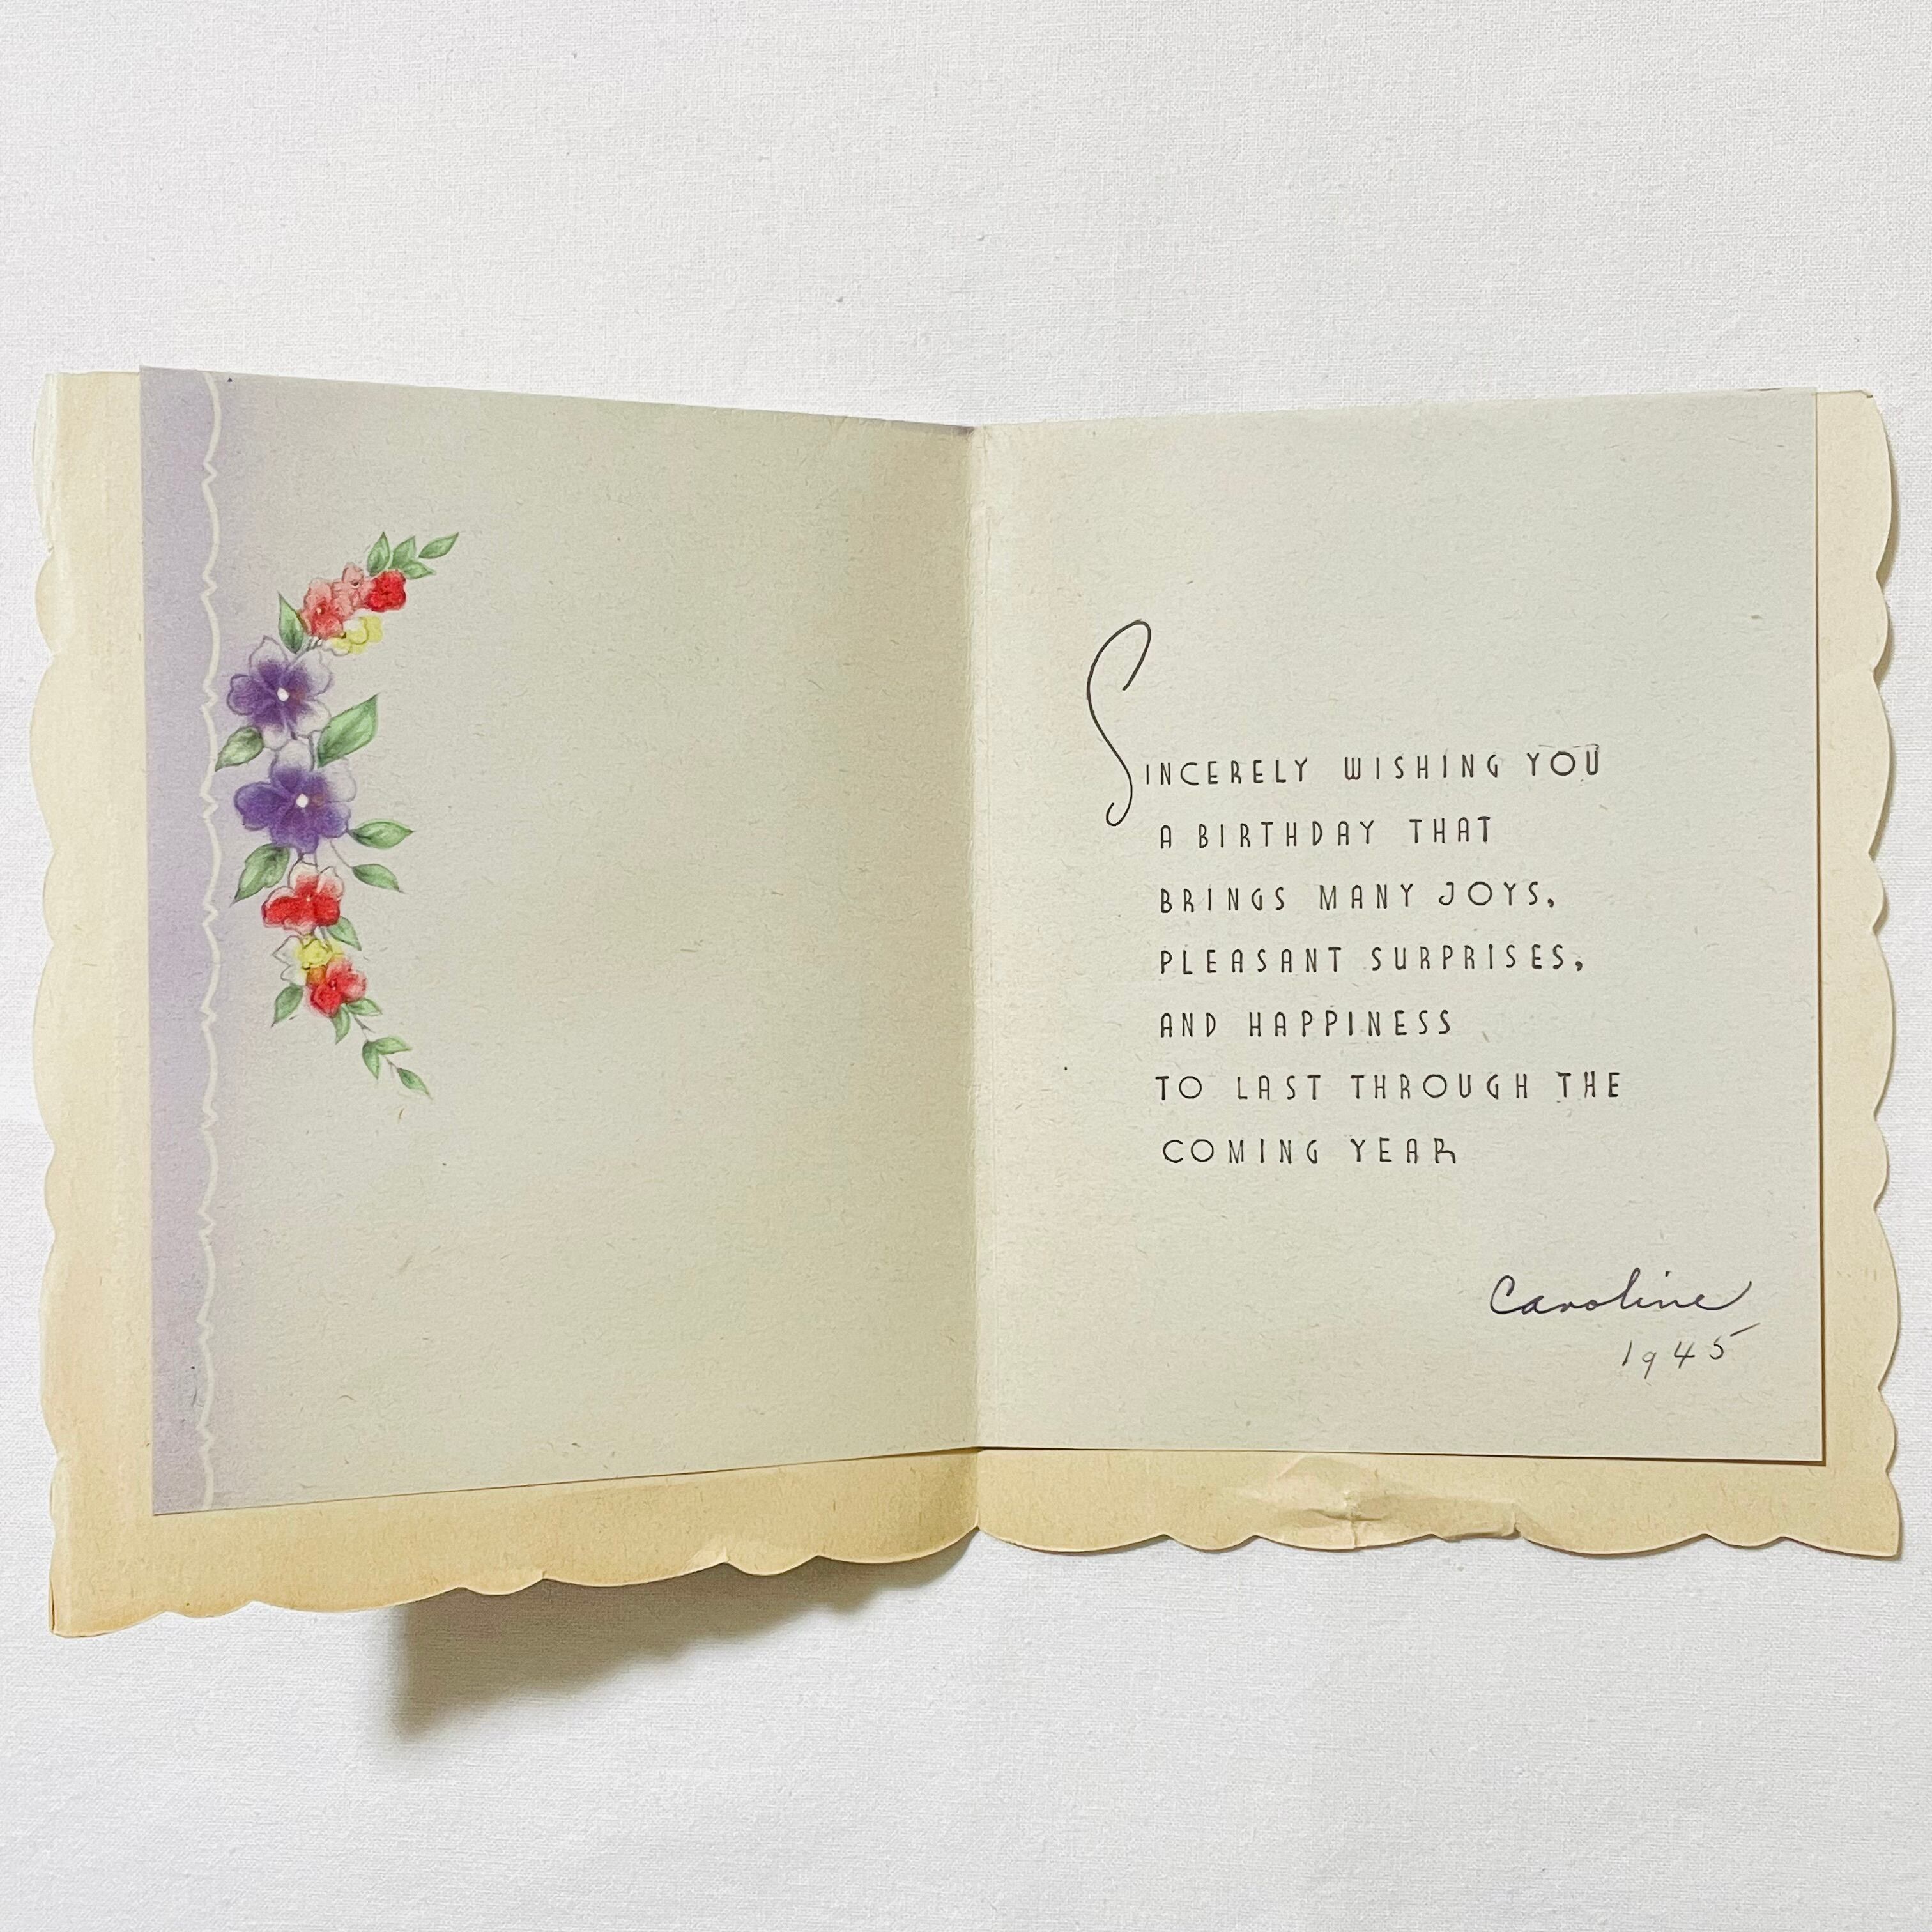 SINCERELY WISHING YOU
A BIRTHDAY THAT
BRINGS MANY JOYS,
PLEASANT SURPRISES,
AND HAPPINESS
TO LAST THROUGH THE
COMING YEAR
Caroline
1945